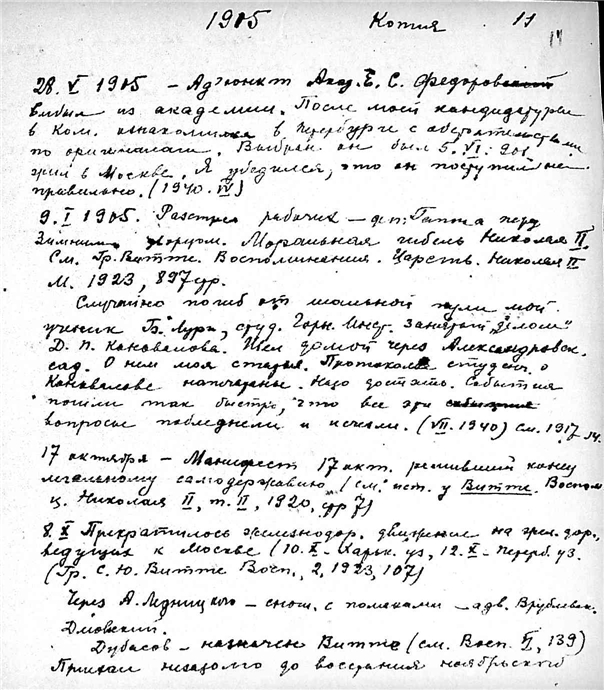 1905 Копия 11
28. V 1905 — Адъюнкт Акад. Е. С. Федоровский
выбыл из академии. После моей кандидатуры
в Ком. ознакомился в Петербурге с обстоятельствами
по оригиналам. Выбран он был 5. VI. 901
в Москве. Я убедился, что он поступил не
правильно. (1940. IV)
9. I 1905. Расстрел рабочих — Гапона перед
Зимним дворцом. Моральная гибель Николая II.
См. Гр. Витте. Воспоминания. Царств. Николая II
М. 1923, 897 стр.
Случайно погиб от шальной пули мой
ученик Б. Лури, студ. Горн. Инст. занятый „делом"
Д. П. Коновалова. Шел домой через Александровск.
сад. О нем моя статья. Протоколы студенч. о
Коновалове напечатаны. Надо достать. События
пошли так быстро, что все эти события
вопросы побледнели и исчезли. (VII. 1940) см. 1917 14.
17 октября — Манифест 17 окт. решивший конец
легальному самодержавию (см. ист. у Витте. Воспом
ц. Николая II, т. II, 1920, стр 7)
8. X Прекратилось железнодор. движение на дор.,
ведущих к Москве (10. X — Харьк. уз, 12. X — Петерб. уз.
(Гр. С. Ю. Витте Восп., 2, 1923, 107)
Через А. Ледницкого — снош. с поляками — адв. Врублевск.
Дмовский.
Дубасов — назначен Витте (см. Восп. II, 139)
Приехал незадолго до восстания ноябрьского